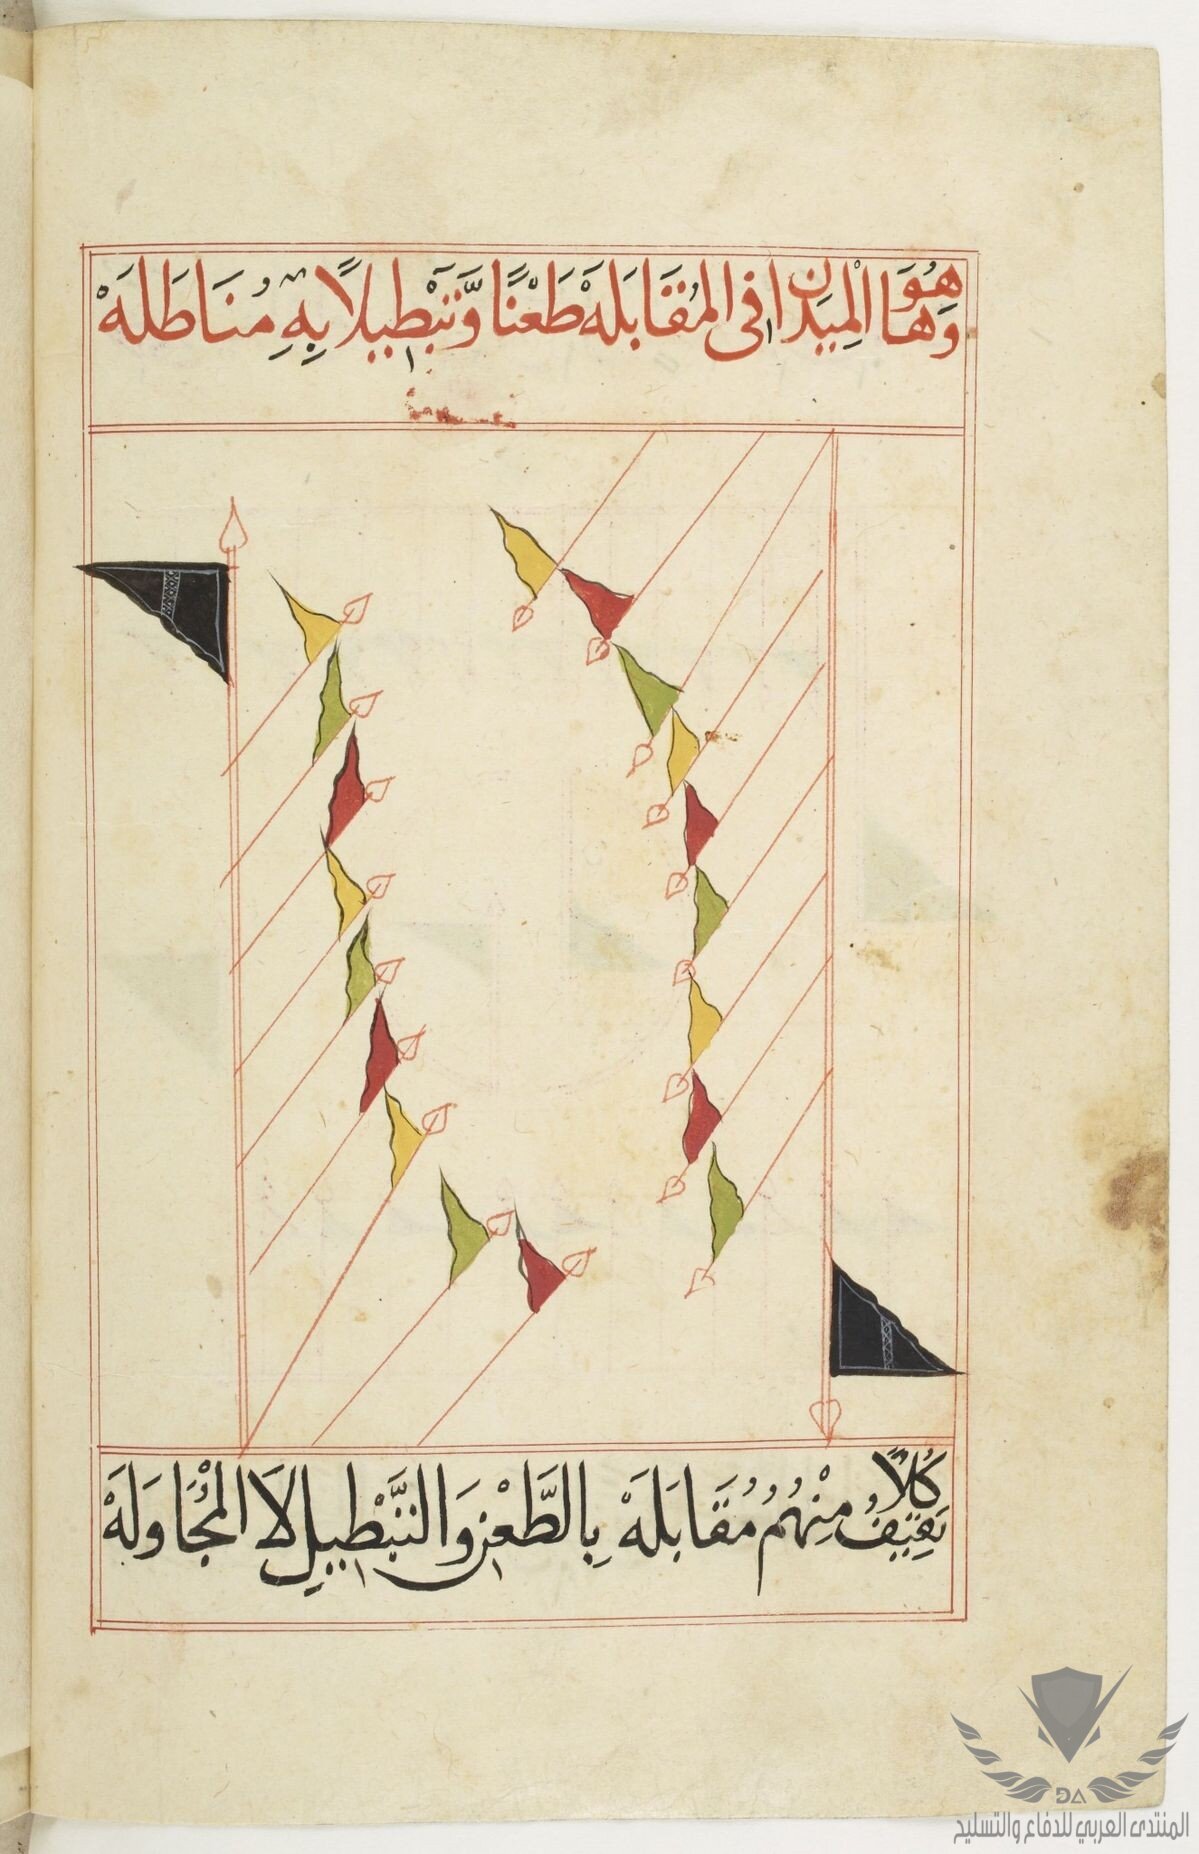 وَهَا هُوَ الْمِيدَانُ فِى الْمُقَابَلَهْ طَعْنًا وَّتَبْطِيلًا بِهِ مُنَاطَلَهْ
كُلًّا مِنْهُمُ مُقَابَلَهْ بِالطَّعْنِ وَالتَّبْطِيلِ لَا الْمُجَاوَلَهْ
المنتدى العربي للدفاع والتسليح